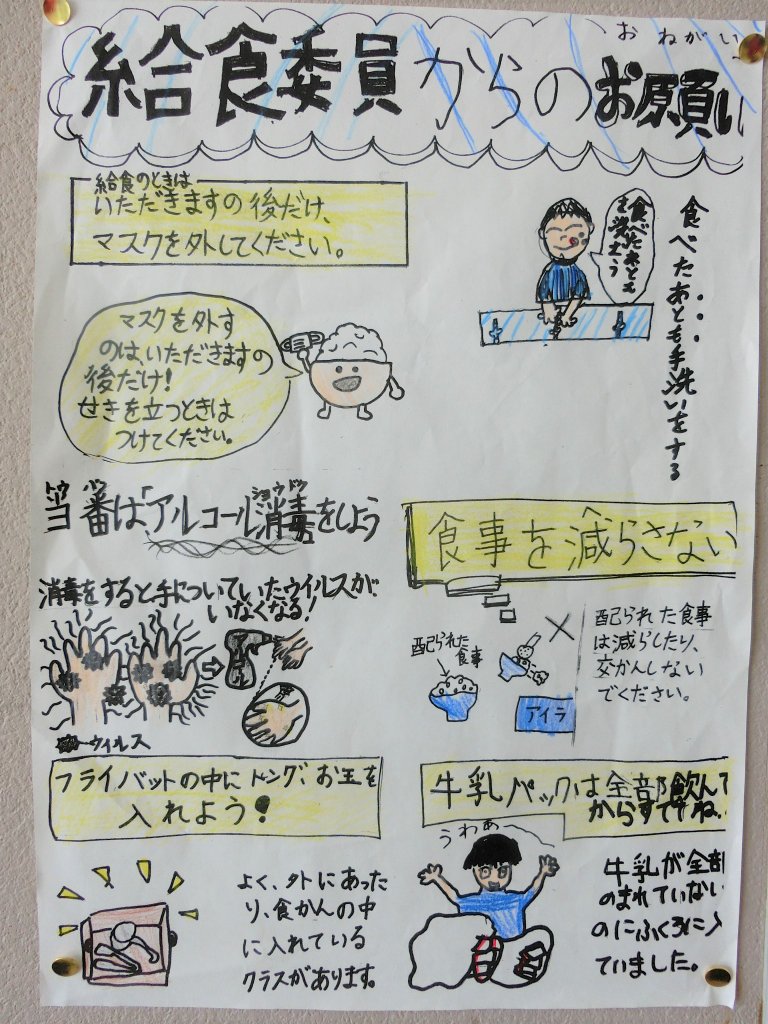 おねがい
給食委員からのお願い
給食のときは
いただきますの後だけ、
マスクを外してください。
食べたあとも手洗いをする
食べたあとも
手を洗おう
マスクを外す
のは、いただきますの
後だけ!
せきを立つときは
つけてください。
トウ バン ショウドク
当番は「アルコール消毒をしよう
消毒をすると手についていたウイルスが
いなくなる!
ウィルス
食事を減らさない
配られた食事
は減らしたり、
交かんしない
でください。
配られた
食事
アイラ
フライバットの中にトング、お玉を
入れよう!
よく、外にあった
り、食かんの中
に入れている
クラスがあります。
牛乳パックは全部飲んで
からすててね。
うわぁ
牛乳が全部
のまれていない
のにふくろに入
ていました。